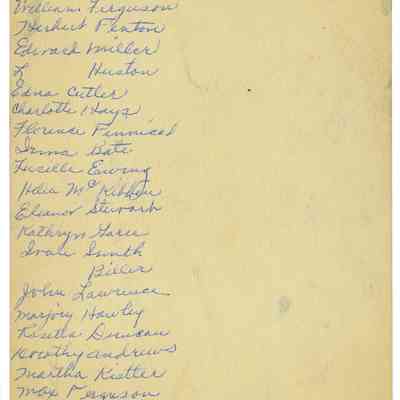 William Ferguson
Herbert Fenton
Edward Miller
L Huston
Edna Cutler
Charlotte Hays
Florence Finnical
Irma Bate
Lucille Ewing
Helen McKibben
Eleanor Stewart
Kathryn
Ivan Smith
Biller
John Lawrence
Marjory Hawley
Rosella Duncan
Dorothy Andrews
Martha Kistler
Max Ferguson